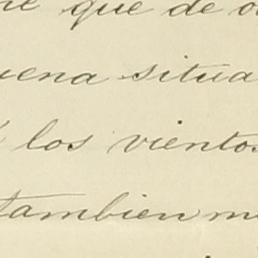 que de
uena situa
los vientos
tambien m